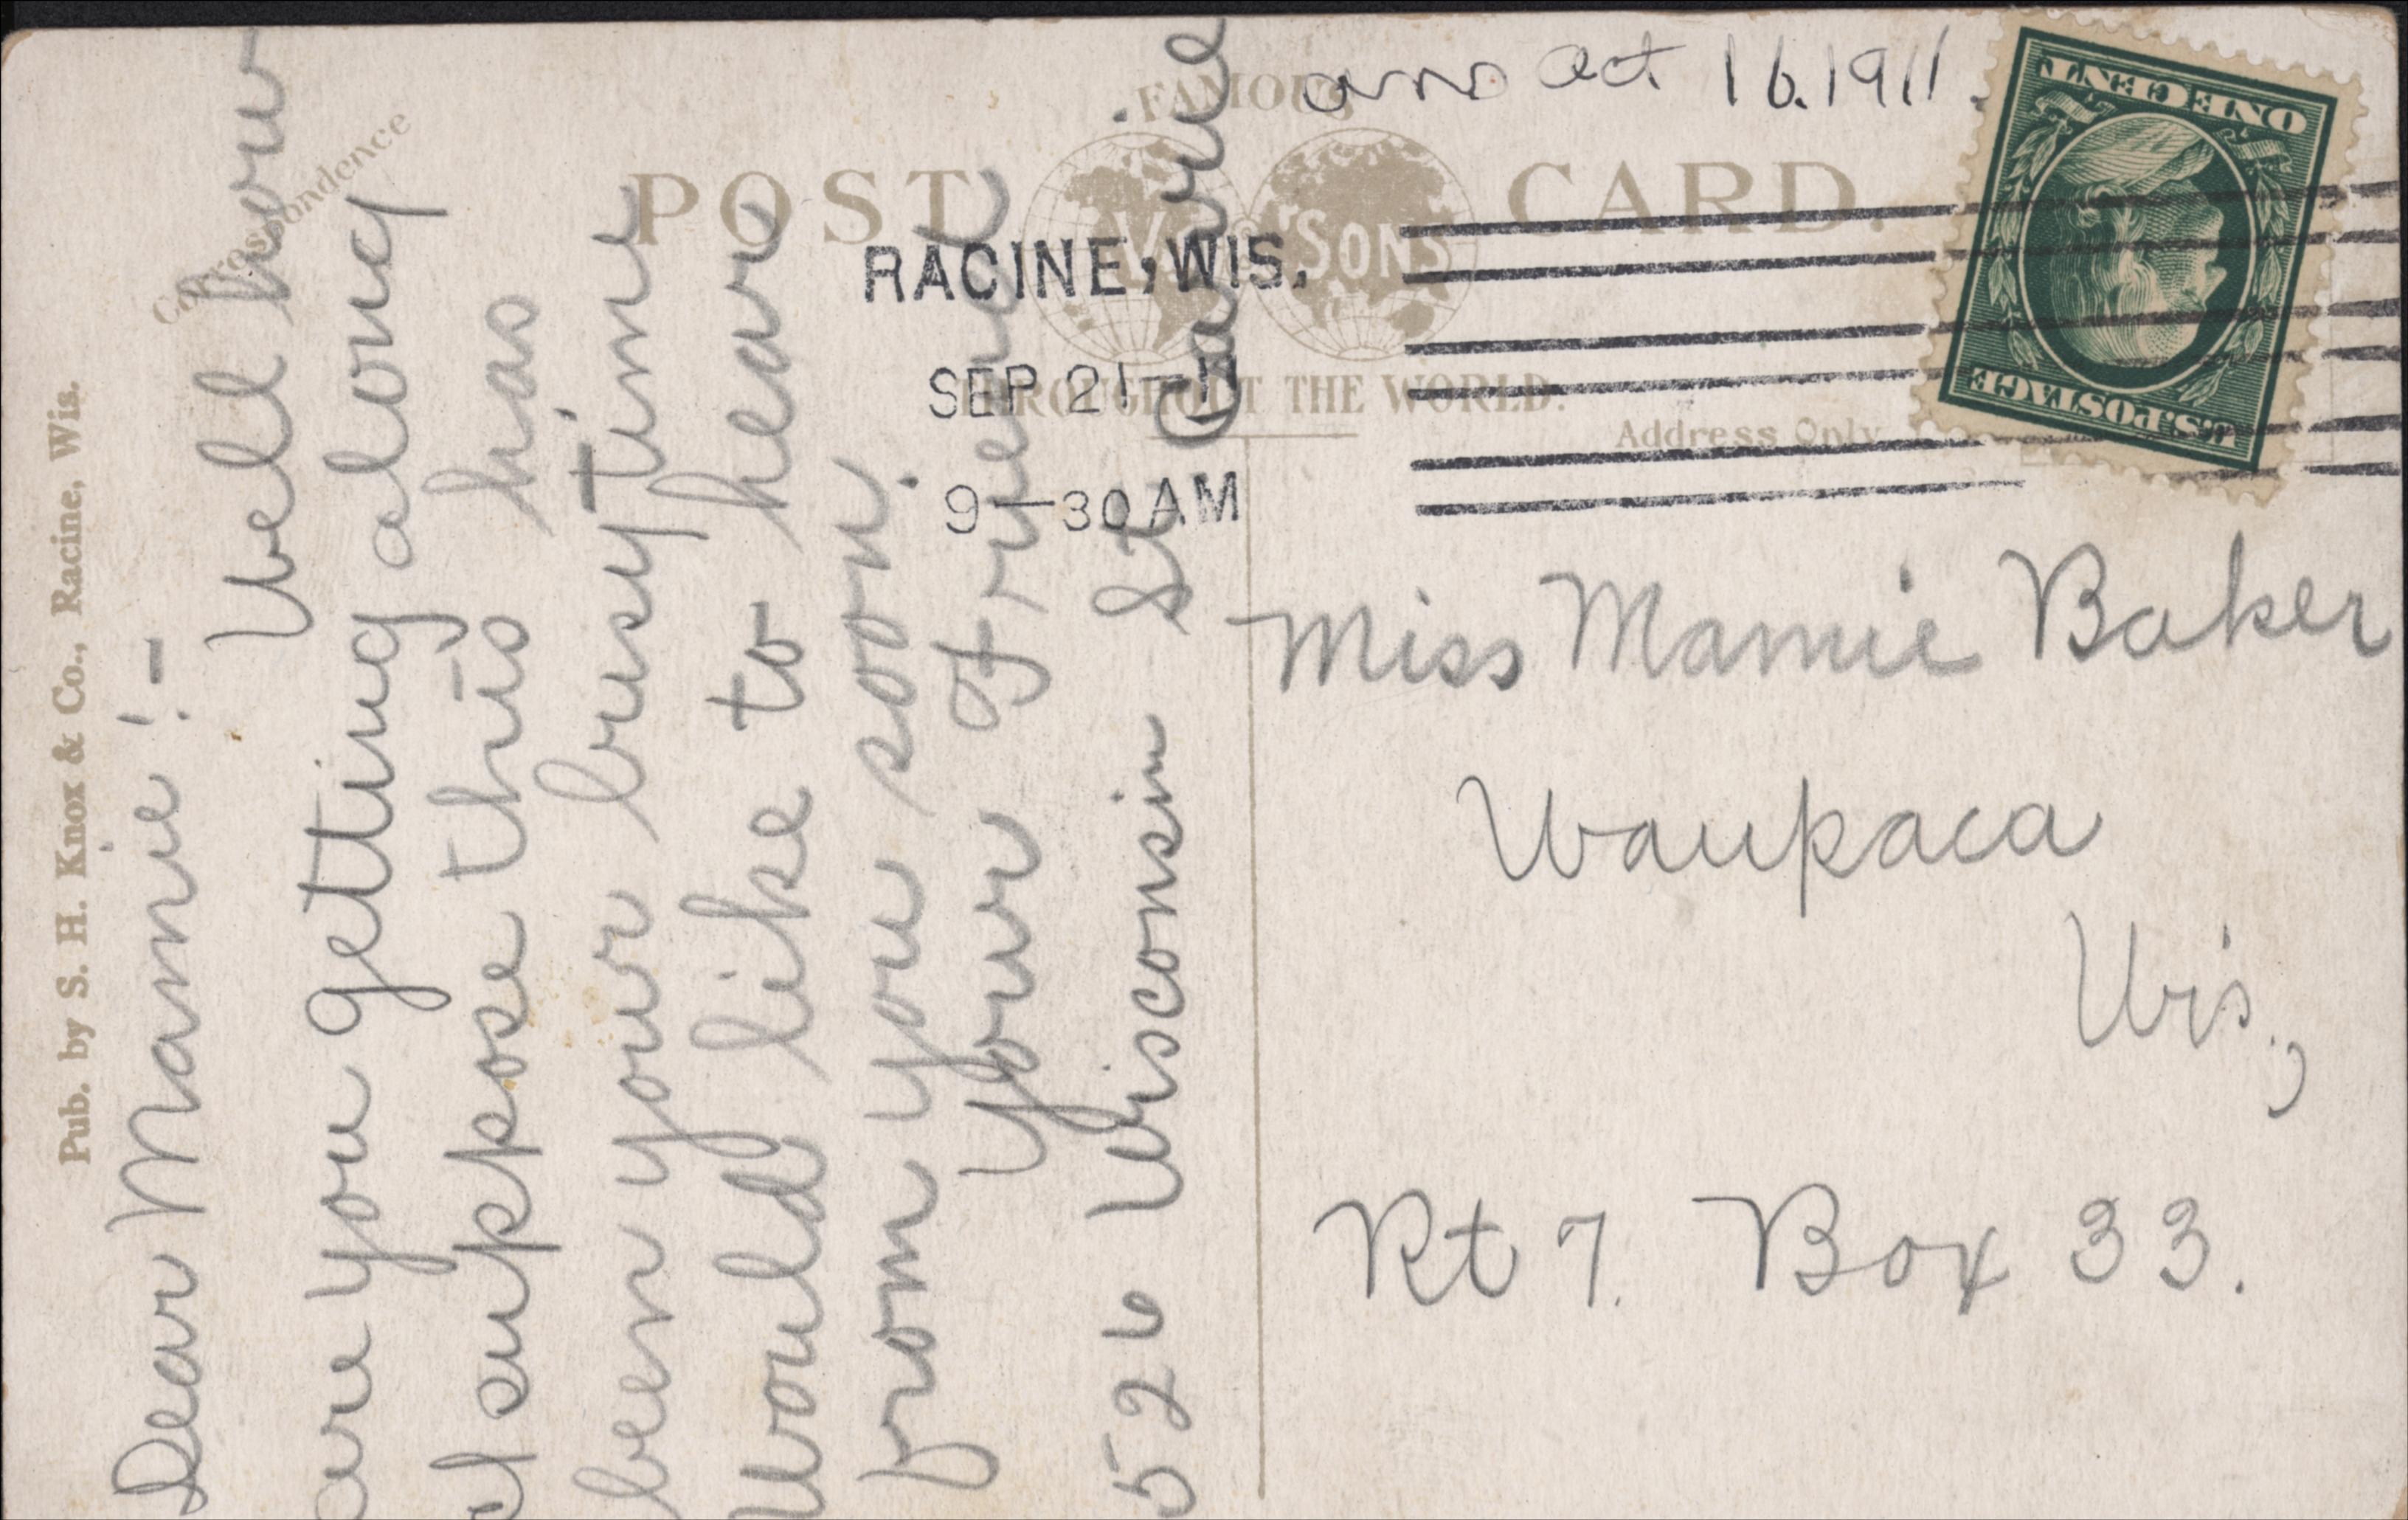 Pub. by S. H. Knox & Co., Racine, Wis.
Correspondence
Dear Mamie!-
Well how
are you getting along
I suppose this has
been your busy time
Would like to hear
from you soon.
Your Friend
Carrie
526 Wisconsin St
ans Oct 16.1911.
FAMOUS
POST CARD.
V. O. SONS
THROUGHOUT THE WORLD.
Address Only
RACINE, WIS.
SEP 21
9-30 AM
ONE CENT
U.S. POSTAGE
Miss Mamie Baker
Waupaca
Wis.,
Rt 7. Box 33.